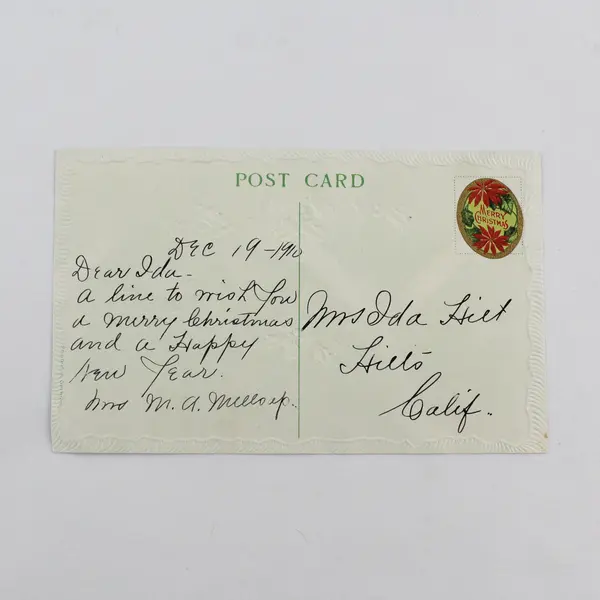 POST CARD
MERRY
CHRISTMAS
DEC 19-1910
Dear Ida-
a line to wish you
a merry Christmas
and a Happy
New Year.
Mrs M. A. Millsap.
Mrs Ida Hilt
Hilts
Calif.